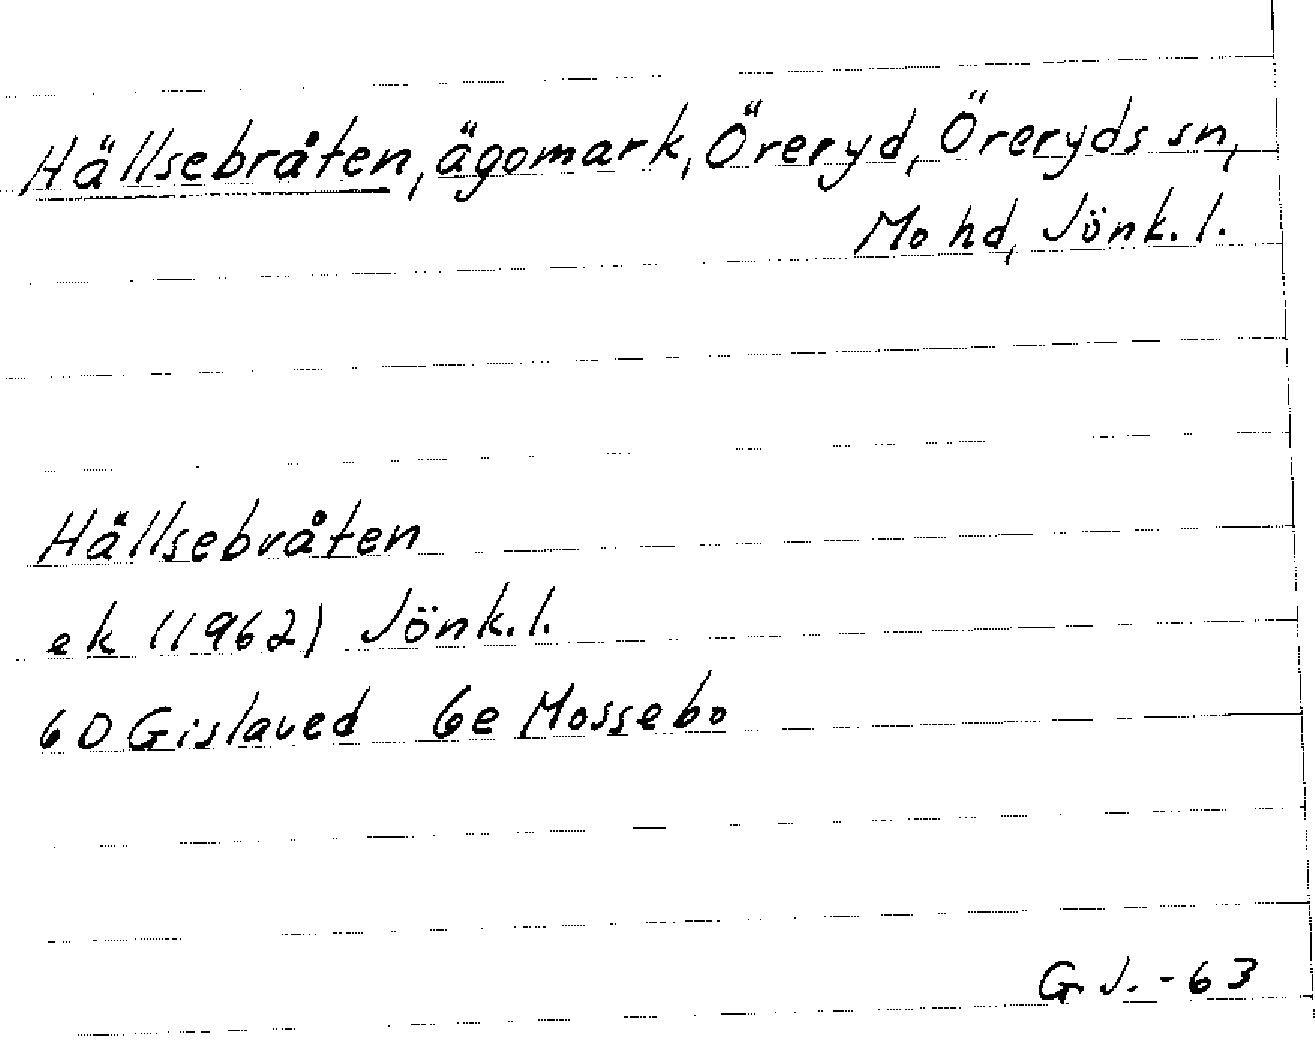 Hällsebråten, ägomark, Öreryd, Öreryds sn,
Mo hd, Jönk. l.
Hällsebråten
ek (1962) Jönk. l.
6D Gislaved 6e Mossebo
G. J. -63